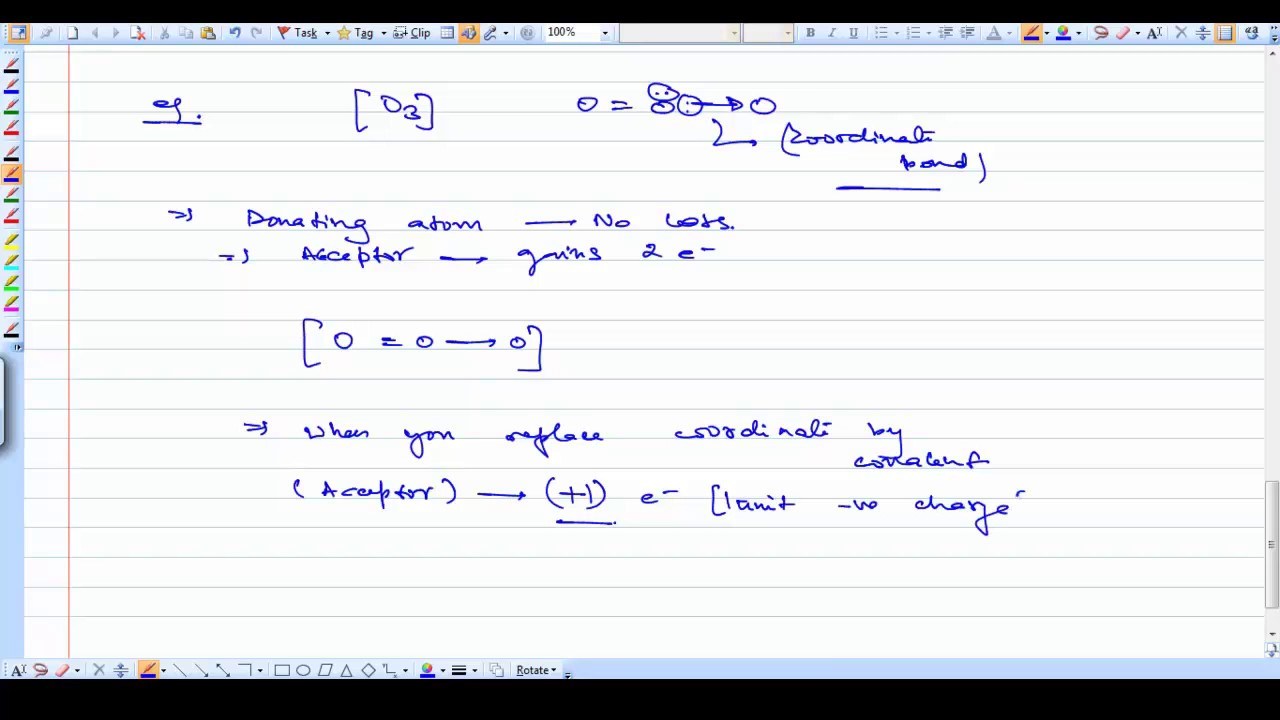 Task Tag Clip 100% B I U
eg. [O3] O = O → O
(Coordinate
bond)
⇒ Donating atom → No Loss.
⇒ Acceptor → gains 2 e⁻
[O = O → O]
⇒ When you replace coordinate by
covalent
(Acceptor) → (+1) e⁻ [1 unit -ve charge
Rotate